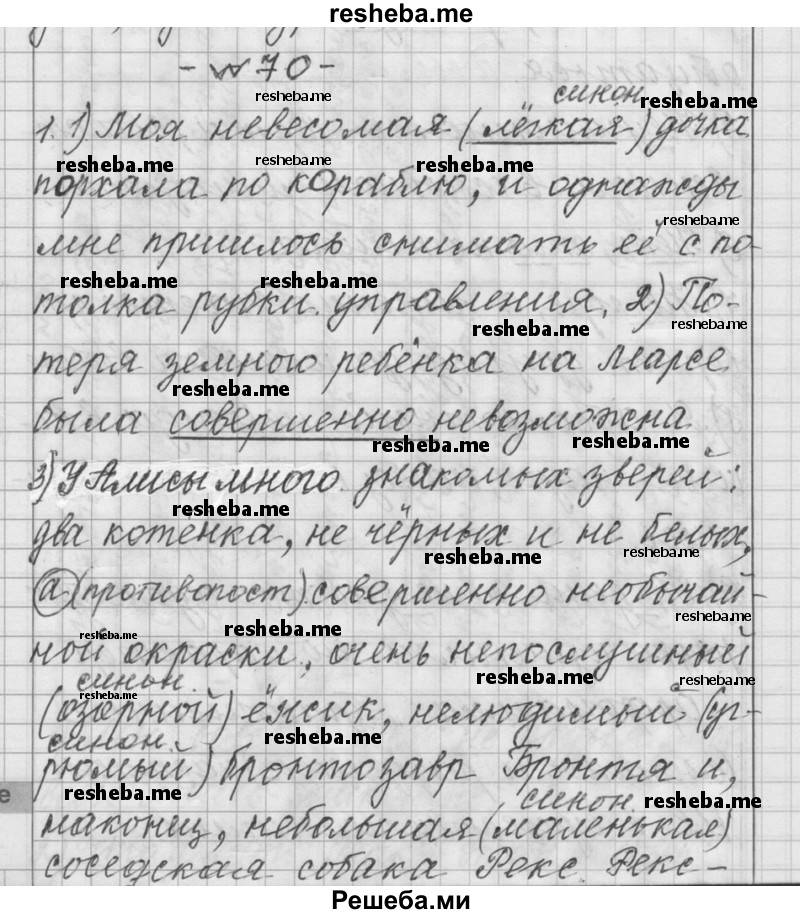 resheba.me
- № 70 -
синон.
1. 1) Моя невесомая (лёгкая) дочка
порхала по кораблю, и однажды
мне пришлось снимать её с по-
толка рубки управления. 2) По-
теря земного ребёнка на Марсе
была совершенно невозможна
3) У Алисы много знакомых зверей:
два котенка, не чёрных и не белых,
а (противопост) совершенно необычай-
ной окраски, очень непослушный
синон.
(озорной) ёжик, нелюдимый (уг-
синон.
рюмый) бронтозавр Бронтя и,
синон.
наконец, небольшая (маленькая)
соседская собака Рекс. Рекс-
Решеба.ми